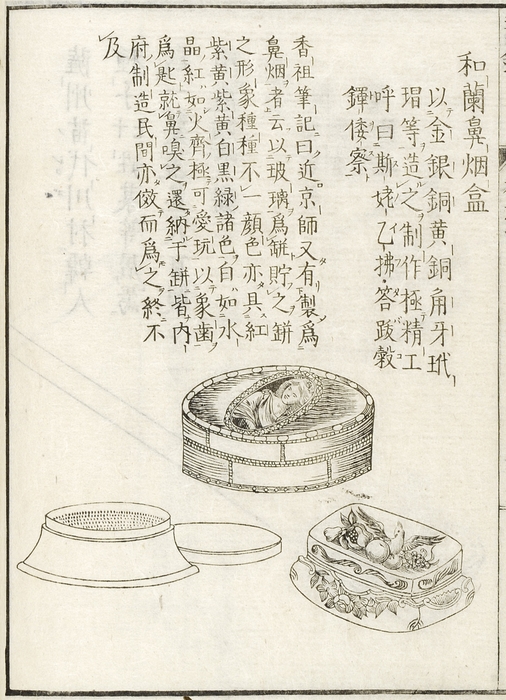 和蘭鼻烟盒
以金銀銅黄銅角牙玳
瑁等造之制作極精工
呼曰斯姥乙拂・答跋穀
鐸倭察
香祖筆記曰近京師又有製爲
鼻烟者云以玻璃爲缾貯之缾
之形象種種不一顔色亦具紅
紫黄紫黄白黒緑諸色白如水
晶紅如火齊極可愛玩以象齒
爲匙就鼻嗅之還納于缾皆内
府制造民間亦倣而爲之終不
及